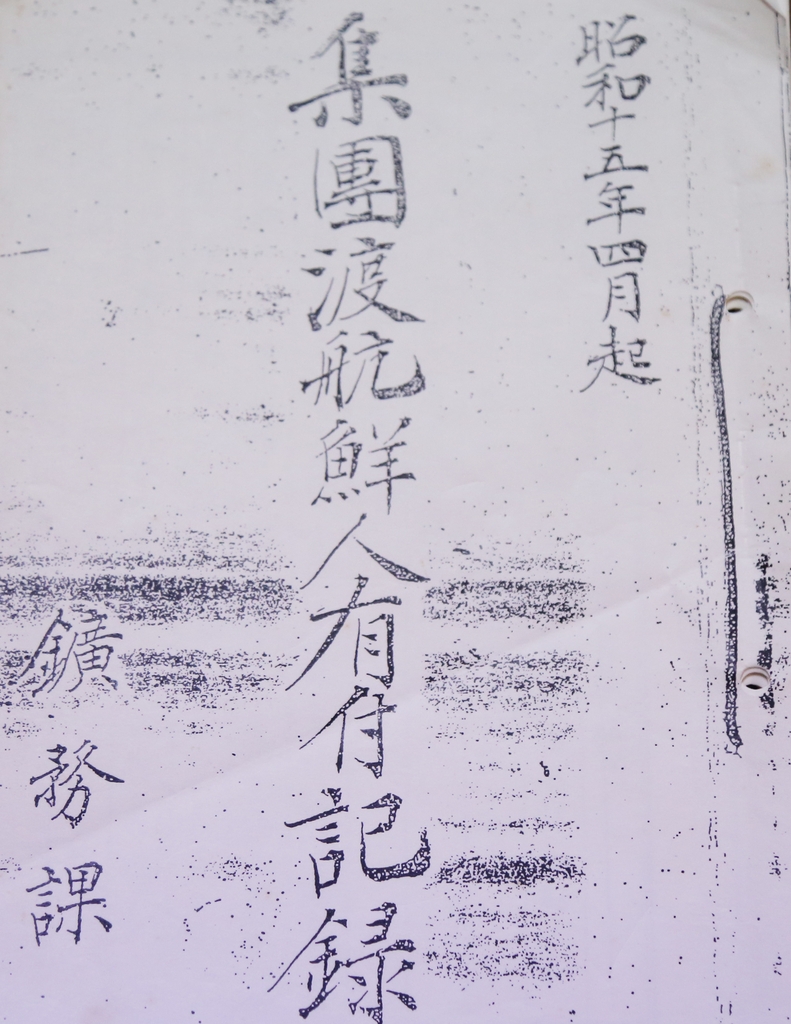 昭和十五年四月起
集團渡航鮮人有付記録
鑛務課